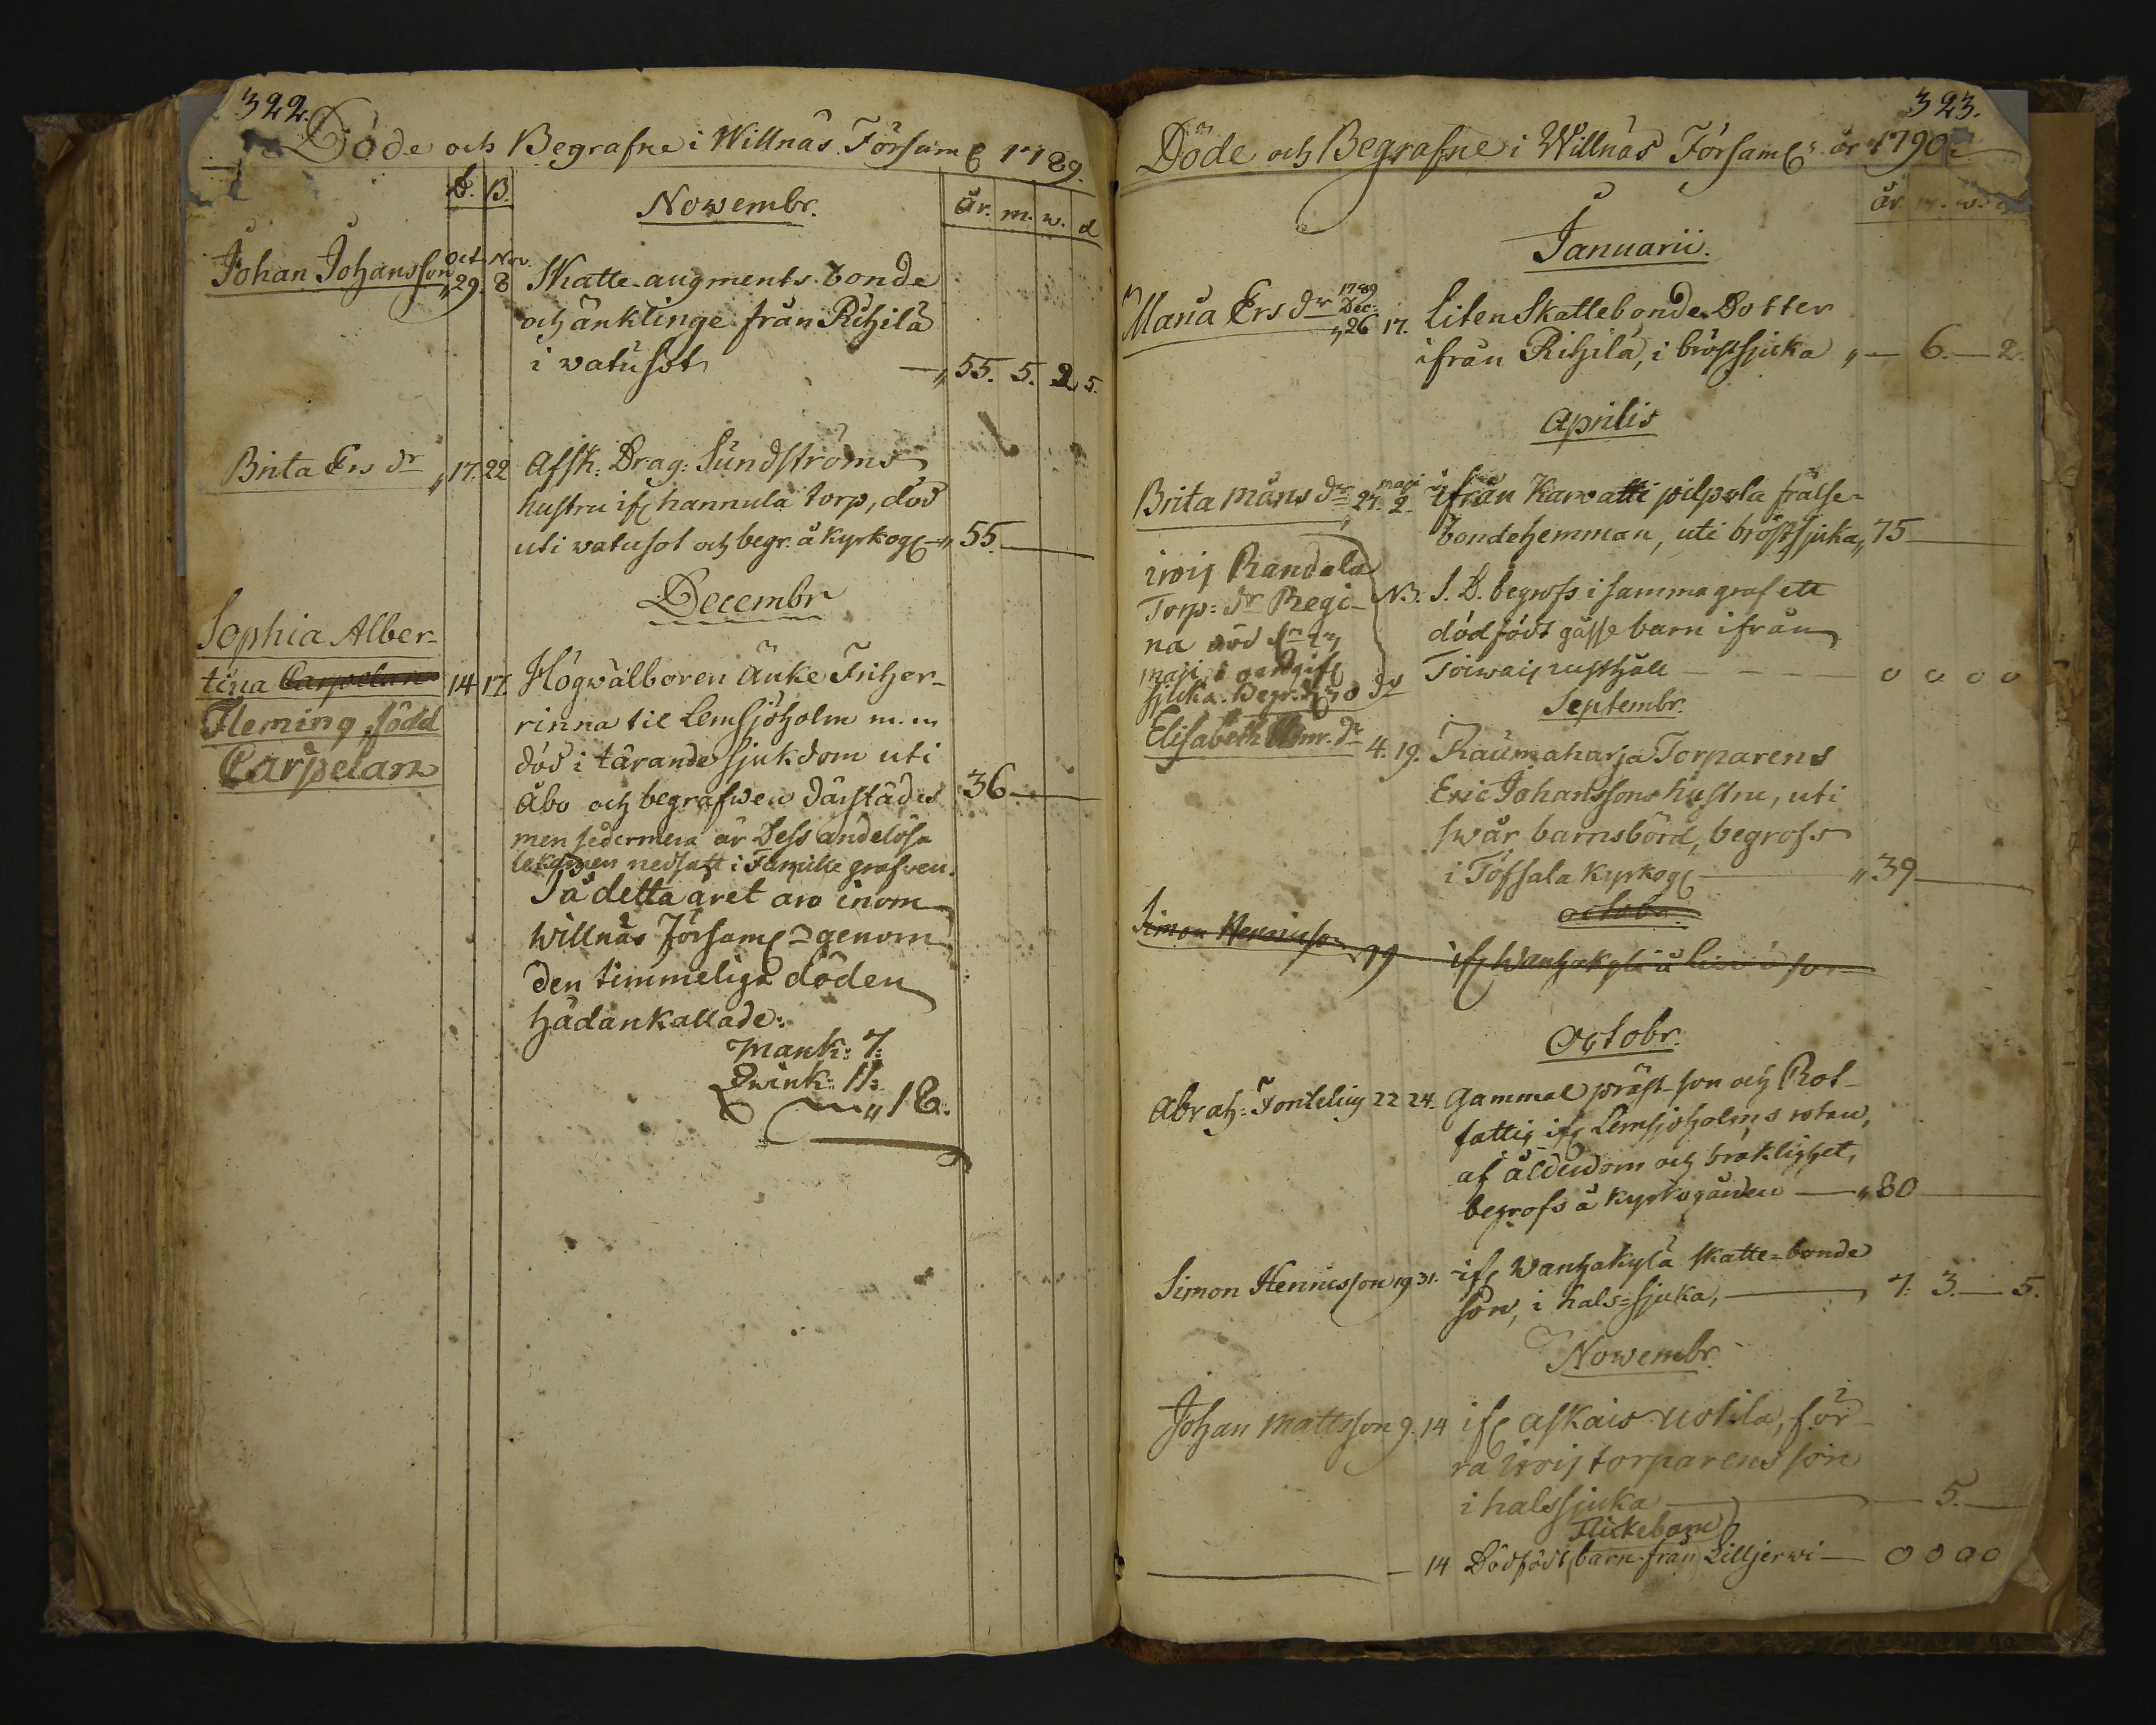 322.
Döde och Begrafne i Willnäs Församl 1789.
D. B. Nowembr. år. m. w. d
Johan Johansson Oct. 29. Nov. 8 Skatte-augments-bonde
och änklinge från Rihilä
i watusot 55. 5. 2 5.
Brita Ers dr 17. 22 Afsk: Drag: Sundströms
hustru ifr hannula torp, död
uti watusot och begr. å kyrkog 55.
Decembr
Sophia Alber-
tina Carpelan 14 17. Högwälboren Änke Friher-
Fleming, född rinna til Lemsjöholm m. m
Carpelan död i tärande sjukdom uti
Åbo och begrafwen därstädes 36
men sedermera är Dess andelösa
lekamen nedsatt i Famille grafwen.
På detta året äro inom
Willnäs Församl genom
den timmeliga döden
hädankallade:
Mank: 7:
Qwink: 11:
18.
323.
Döde och Begrafne i Willnäs Församl: år 1790
år. m. w. d
Januarii.
Maria Ers dr 1789 Dec: 26 17. Liten Skattebonde Dotter
ifrån Rihilä, i bröstsjuka 6. 2.
Aprilis
Brita Måns dr 27. maji 2. ifrån Karwatti pilpola frälse-
bondehemman, uti bröstsjuka 75
Randala NB. S. D. begrofs i samma graf ett
Torp: dr Regi- dödfödt gåsse barn ifrån
na död
maji i
sjuka. Begr. rusthåll 0 0 0 0
Septembr.
Elisabeth dr 4. 19. Raumaharja Torparens
Eric Johanssons hustru, uti
swår barnsbörd, begrofs
i Töfsala kyrkog 39
octobr.
Simon Henricson 19 ifr Wanhakylä
Octobr.
Abrah: Fontelius 22 24. Gammal präst-son och Rot-
fattig ifr Lemsjöholms rotan,
af ålderdom och bräklighet,
begrofs å kyrkogården 80
Simon Henricsson 19 31. ifr Wanhakylä skatte-bonde
son, i hals-sjuka, 7. 3. 5.
Nowembr.
Johan Mattsson 9. 14 ifr Askais Uotila, för-
ra torparens son
i halssjuka 5.
Flickebarn
14 Dödfödt barn från Lilljerwi 0 0 0 0